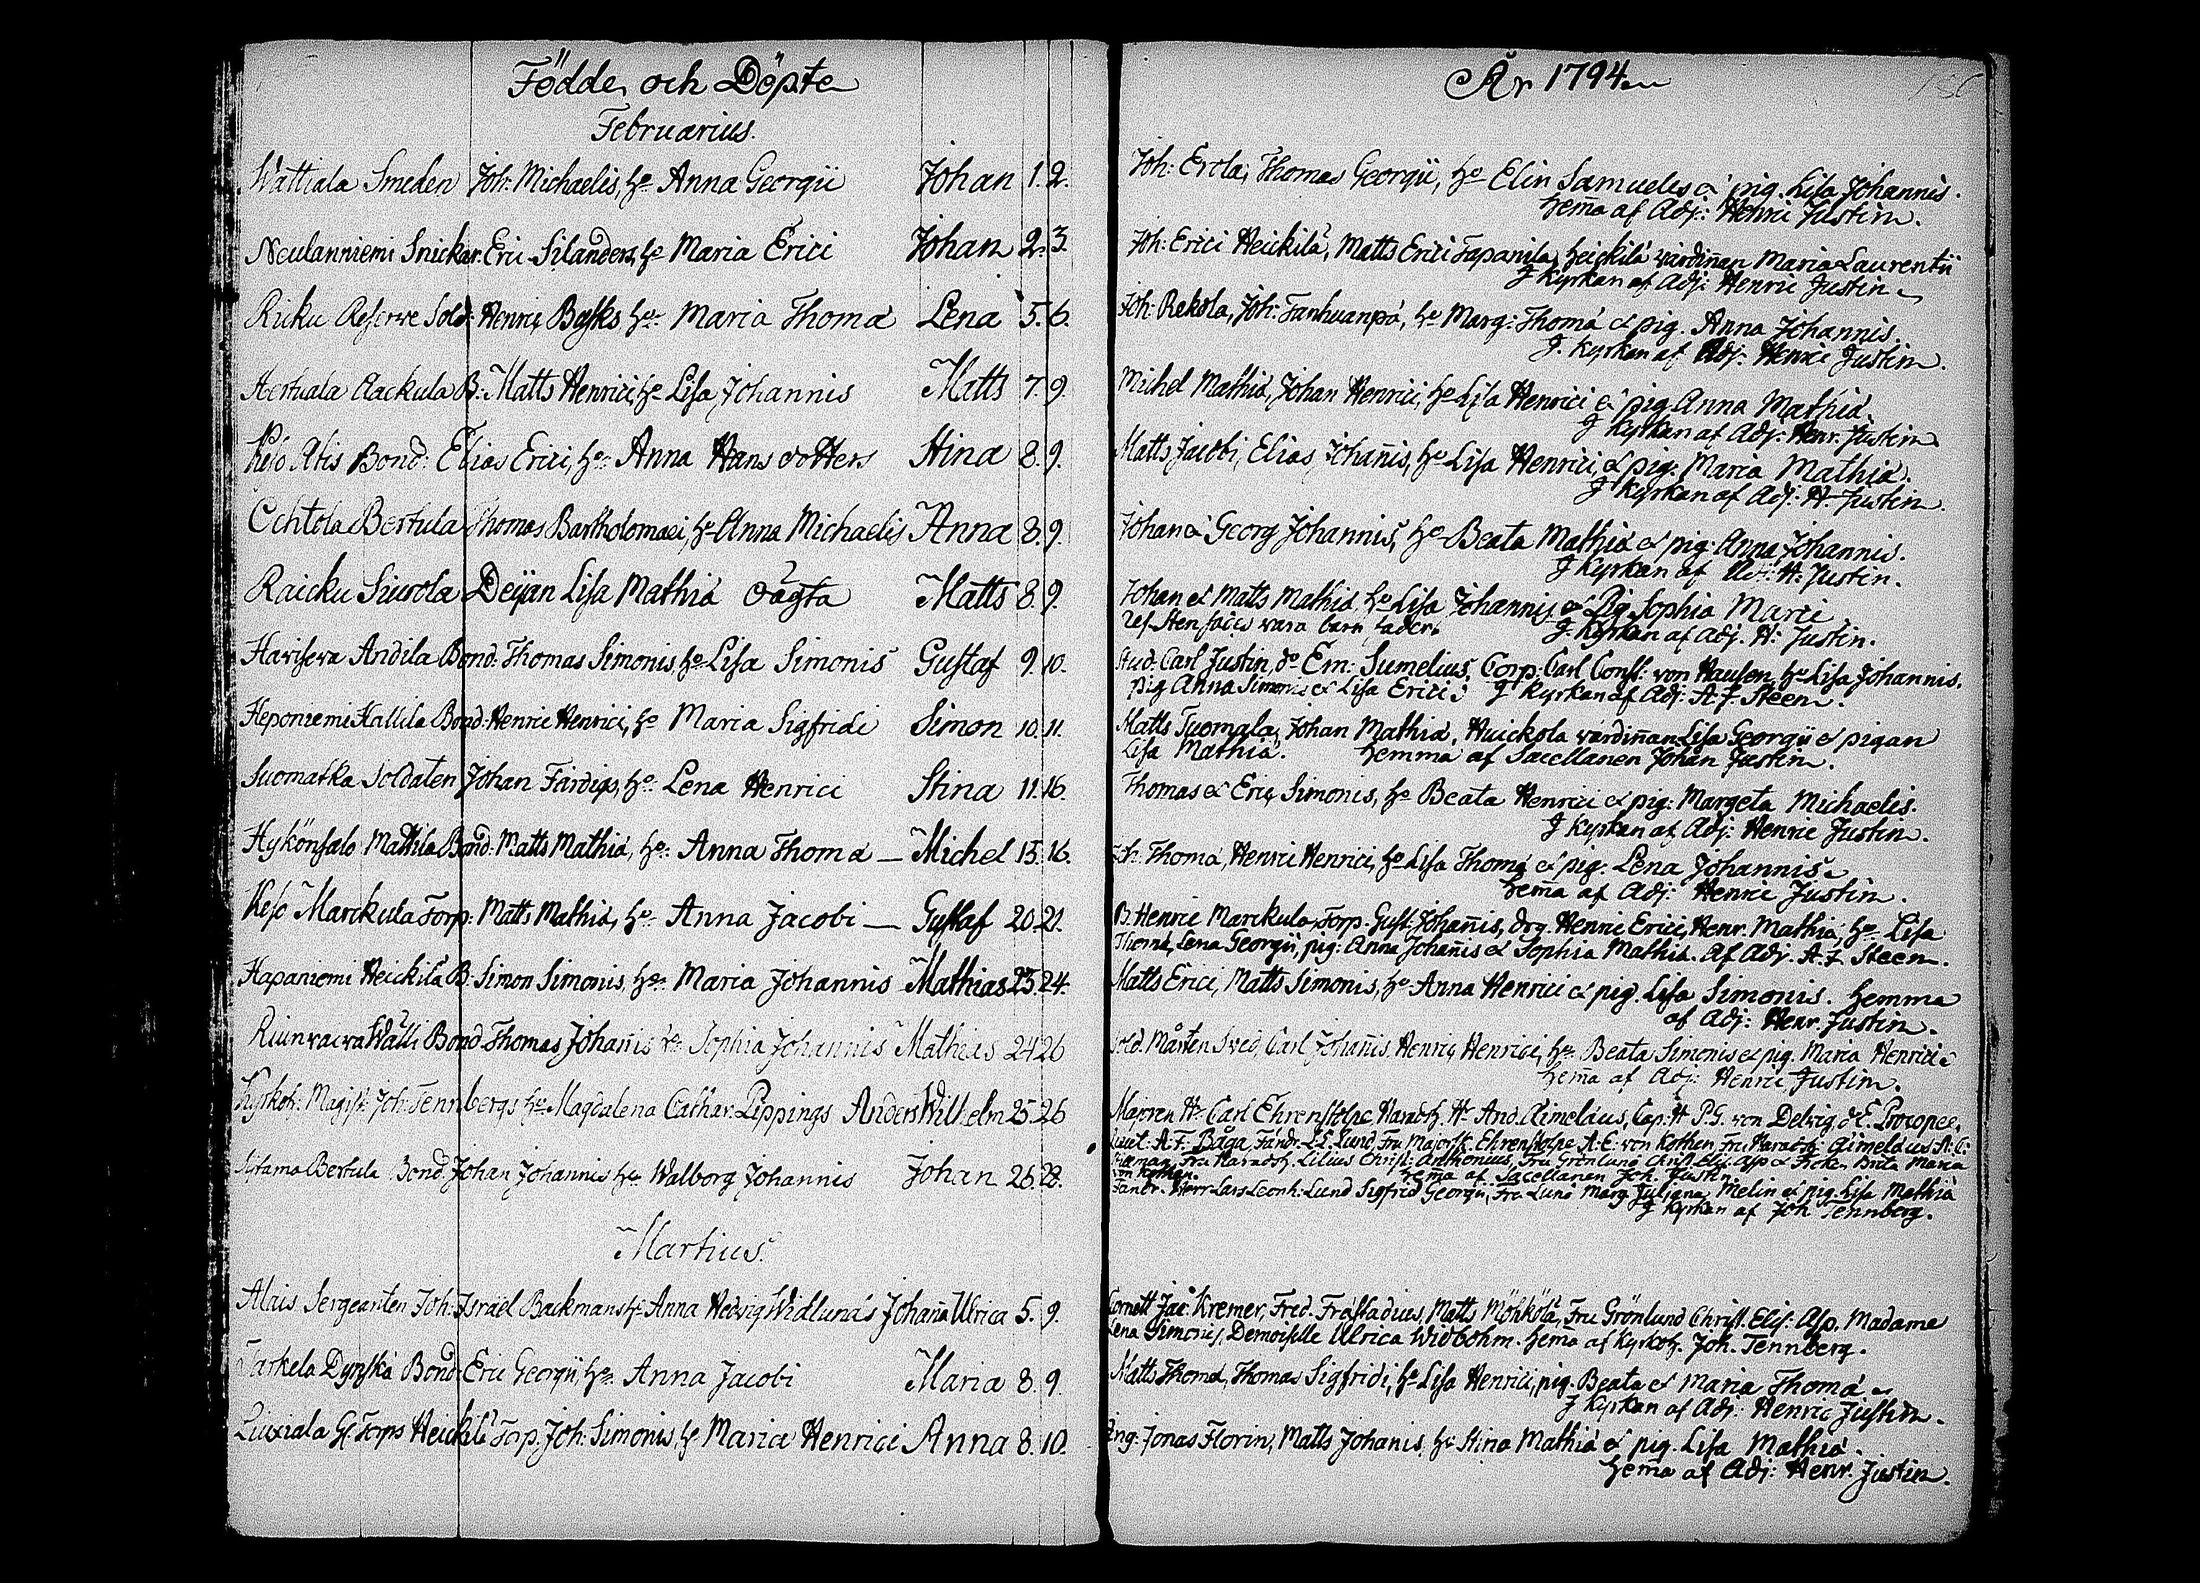 Födde och Döpte
Februarius.
Wattiala Smeden Joh: Michaelis, he Anna Georgii Johan 1. 2.
Neulanniemi Snickar: Eric Silanders, he Maria Erici Johan 2. 3.
Ricku Reserve Sold: Henric Basks he: Maria Thomæ Lena 5. 6.
Aackula B: Matts Henrici, he Lisa Johannis Matts 7. 9.
Keso Atis Bond: Elias Erici, he: Anna Hans dotters Stina 8. 9.
Ochtola Bertula Thomas Bartholomæi, he Anna Michaelis Anna 8. 9.
Raicku Siurola Deijan Lisa Mathiæ oägta Matts 8. 9.
Haviseva Andila Bond: Thomas Simonis, he Lisa Simonis Gustaf 9. 10.
Heponiemi Kallila Bond: Henric Henrici, he Maria Sigfridi Simon 10. 11.
Suomatka Soldaten Johan Färdigs, he: Lena Henrici Stina 11. 16.
Hykönsalo Mattila Bond: Matts Mathiæ, he: Anna Thomæ — Michel 15. 16.
Keso Marckula Torp: Matts Mathiæ, he: Anna Jacobi — Gustaf 20. 21.
Hapaniemi Heickilä B: Simon Simonis, he: Maria Johannis Mathias 23. 24.
Riunvaiva Wälli Bond. Thomas Johañis he: Sophia Johannis Mathias 24 26
Kyrkoh: Magist: Joh: Tennbergs he: Magdalena Cathar. Lippings Anders Wilhelm 25. 26
Bertula Bond. Johan Johannis he: Walborg Johannis Johan 26. 28.
Martius.
Alais Sergeanten Joh: Israël Backmans he Anna Hedvig Widlunds Johaña Ulrica 5. 9.
Bond: Eric Georgii, he: Anna Jacobi Maria 8. 9.
Liuxiala Heickilä Torp. Joh: Simonis, he Maria Henrici Anna 8. 10.
År 1794
Joh: Erola, Thomas Georgii, he Elin Samuelis & pig. Lisa Johannis.
hem̃a af Adj: Henric Justin.
Joh: Erici Heickilä, Matts Erici Tapanila, Heickilä värdinan Maria Laurentii
J Kyrkan af Adj: Henric Justin
Joh: Rekola, Joh: Tanhuanpä, he Marg: Thomæ & pig. Anna Johannis.
J. Kyrkan af Adj. Henric Justin.
Michel Mathiæ, Johan Henrici, he Lisa Henrici & pig Anna Mathiæ.
J Kyrkan af Adj: Henr. Justin
Matts Jacobi, Elias Johañis, he Lisa Henrici, & pig. Maria Mathiæ.
J Kyrkan af Adj: H. Justin.
Johan & Georg Johannis, he Beata Mathiæ & pig: Anna Johannis.
J Kyrkan af Adj: H. Justin.
Johan & Matts Mathiæ, he Lisa Johannis & Pig Sophia Marci
vara barn fader. J. Kyrkan af Adj. H. Justin.
Stud: Carl Justin, do Em: Sumelius, Corp: Carl Const: von Hausen, he Lisa Johannis,
pig Anna Simonis & Lisa Erici: J Kyrkan af Adj. A. F. Steen.
Matts Tuomala, Johan Mathiæ, Huickola värdiñan Lisa Georgii & pigan
Lisa Mathiæ. hemma af Sacellanen Johan Justin.
Thomas & Eric Simonis, he Beata Henrici & pig: Margeta Michaelis.
J Kyrkan af Adj: Henric Justin.
Joh. Thomæ, Henric Henrici, he Lisa Thomæ & pig: Lena Johannis
hem̃a af Adj: Henric Justin.
B. Henric Marckula, Torp. Gust: Johañis, drg. Henric Erici, Henr. Mathiæ, he Lisa
Thomæ, Lena Georgii, pig: Anna Johañis & Sophia Mathiæ. af Adj. A. F. Steen.
Matts Erici, Matts Simonis, he Anna Henrici & pig. Lisa Simonis. hemma
af Adj: Henr. Justin.
Sold. Mårten Sved, Carl Johañis, Henric Henrici, he. Beata Simonis & pig. Maria Henrici
hem̃a af Adj: Henric Justin.
Majoren Hr Carl Ehrenstolpe, Haradsh. Hr And. Aimelæus, Cap. H P. G. von Delvig, & E. Procopée,
Lieut: A. F. Båga, Fändr. L L Lund, Fru Majorsk. Ehrenstolpe A. E. von Kothen, Fru Haradsh: Aimelæus A. C.
Fru Haradsh. Lilius Christ: Anthonius, Fru Grönlund Christ. Elis: Alp & Fröken Brita Maria
von Kothen. hem̃a af Sacellanen Joh. Justin.
Fändr. Herr Lars Leonh: Lund Sigfrid Georgii, Fru Lund Marg Juliana Melin & pig. Lisa Mathiæ
J kyrkan af Joh Tennberg.
Cornett Jac: Kremer, Fred. Fräsadius, Matts Möhkölä, Fru Grönlund Christ. Elis: Alp. Madame
Lena Simonis, Demoiselle Ulrica Widbohm. hem̃a af Kyrkoh. Joh. Tennberg.
Matts Thomæ, Thomas Sigfridi, he Lisa Henrici, pig. Beata & Maria Thomæ
J kyrkan af Adj: Henric Justin.
Jonas Florin, Matts Johanis, he Stina Mathiæ & pig. Lisa Mathiæ.
hem̃a af Adj: Henr. Justin.